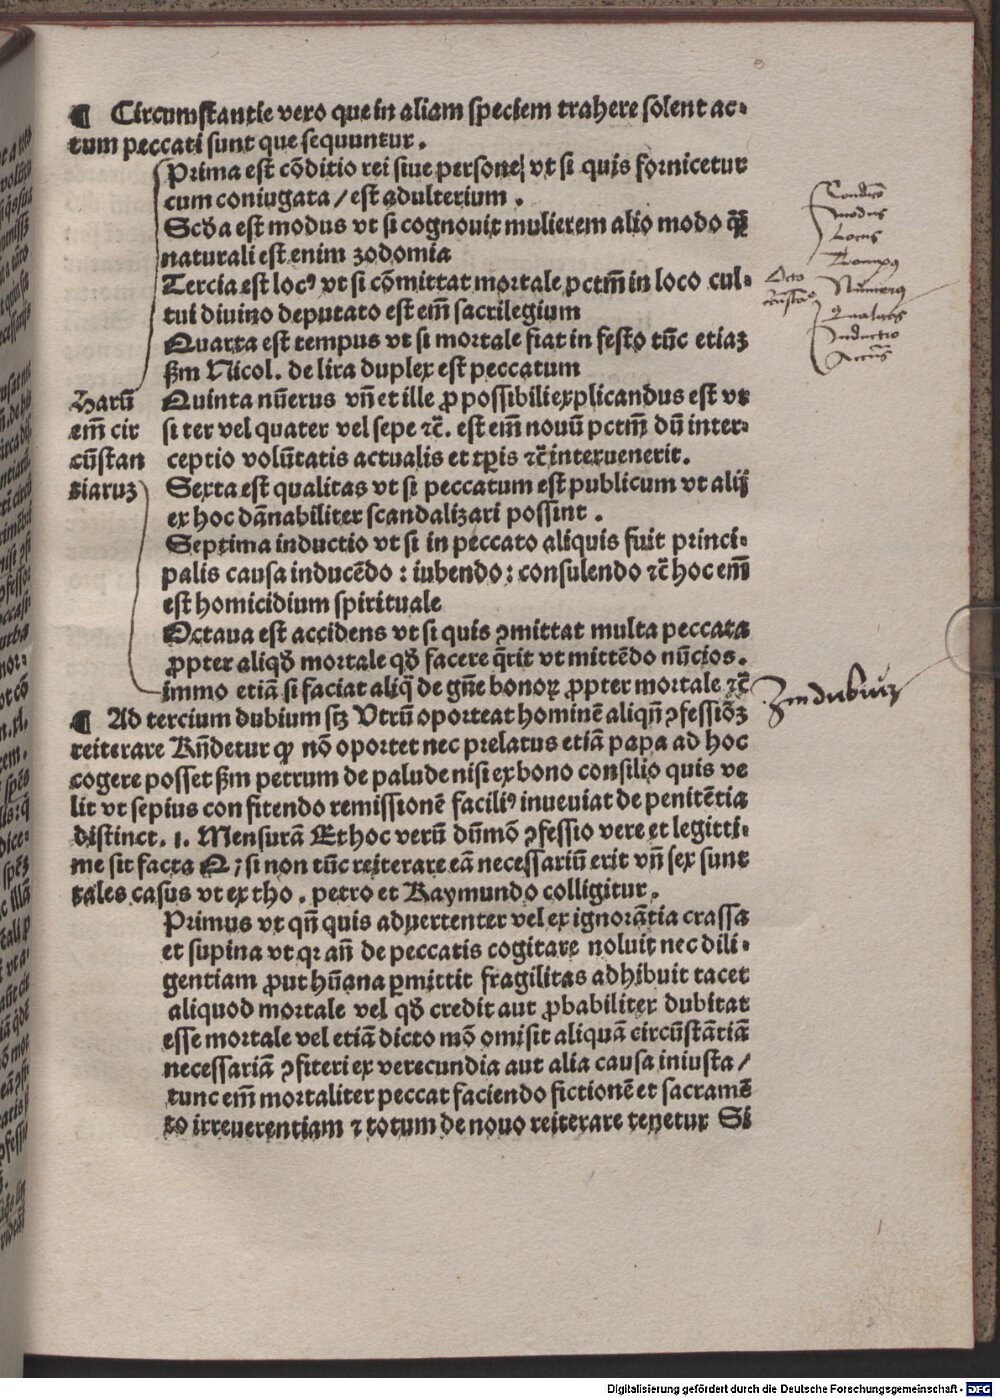 ¶ Circumstantie vero que in aliam speciem trahere solent ac-
tum peccati sunt que sequuntur.
Prima est cōditio rei siue persone| vt si quis fornicetur
cum coniugata / est adulterium.
Scḋa est modus vt si cognouit mulierem alio modo q̄̄
naturali est enim zodomia
Tercia est locꝰ vt si cōmittat mortale pctm̄ in loco cul-
tui diuino deputato est em̄ sacrilegium
Quarta est tempus vt si mortale fiat in festo tūc etiaꝫ
ẜm Nicol. de lira duplex est peccatum
Quinta nūerus vn̄ et ille ꝓ possibili explicandus est vt
si ter vel quater vel sepe ⁊c̄. est em̄ nouū pctm̄ dū inter-
ceptio volūtatis actualis et tp̄is ⁊c̄ interuenerit.
Sexta est qualitas vt si peccatum est publicum vt alij
ex hoc dānabiliter scandalizari possint.
Septima inductio vt si in peccato aliquis fuit princi-
palis causa inducēdo : iubendo : consulendo ⁊c̄ hoc em̄
est homicidium spirituale
Octaua est accidens vt si quis ꝯmittat multa peccata
ꝓpter aliqḋ mortale qḋ facere q̄rit vt mittēdo nūcios.
immo etiā si faciat aliq̄ de gn̄e bonoꝝ ꝓpter mortale ⁊c̄
Harū
em̄ cir
cūstan
tiaruꝫ
Condicio
modus
Locus
Tempus
Numerus
Qualitas
Inductio
Accn̄s
Octo
¶ Ad tercium dubium sꝫ Vtrū oporteat hominē aliqn̄ ꝯfessiōꝫ
reiterare Rn̄detur ꝙ nō oportet nec prelatus etiā papa ad hoc
cogere posset ẜm petrum de palude nisi ex bono consilio quis ve
lit vt sepius confitendo remissionē faciliꝰ inueuiat de penitētia
distinct. 1. Mensurā Et hoc verū dūmō ꝯfessio vere et legitti-
me sit facta Qꝫ si non tūc reiterare eā necessariū erit vn̄ sex sunt
tales casus vt ex tho. petro et Raymundo colligitur.
Primus vt qn̄ quis aduertenter vel ex ignorātia crassa
et supina vt qꝛ an̄ de peccatis cogitare noluit nec dili-
gentiam ꝓut hūana ꝑmittit fragilitas adhibuit tacet
aliquod mortale vel qḋ credit aut ꝓbabiliter dubitat
esse mortale vel etiā dicto mō omisit aliquā circūstātiā
necessariā ꝯfiteri ex verecundia aut alia causa iniusta /
tunc em̄ mortaliter peccat faciendo fictionē et sacramē
to irreuerentiam ⁊ totum de nouo reiterare tenetur Si
Digitalisierung gefördert durch die Deutsche Forschungsgemeinschaft - DFG